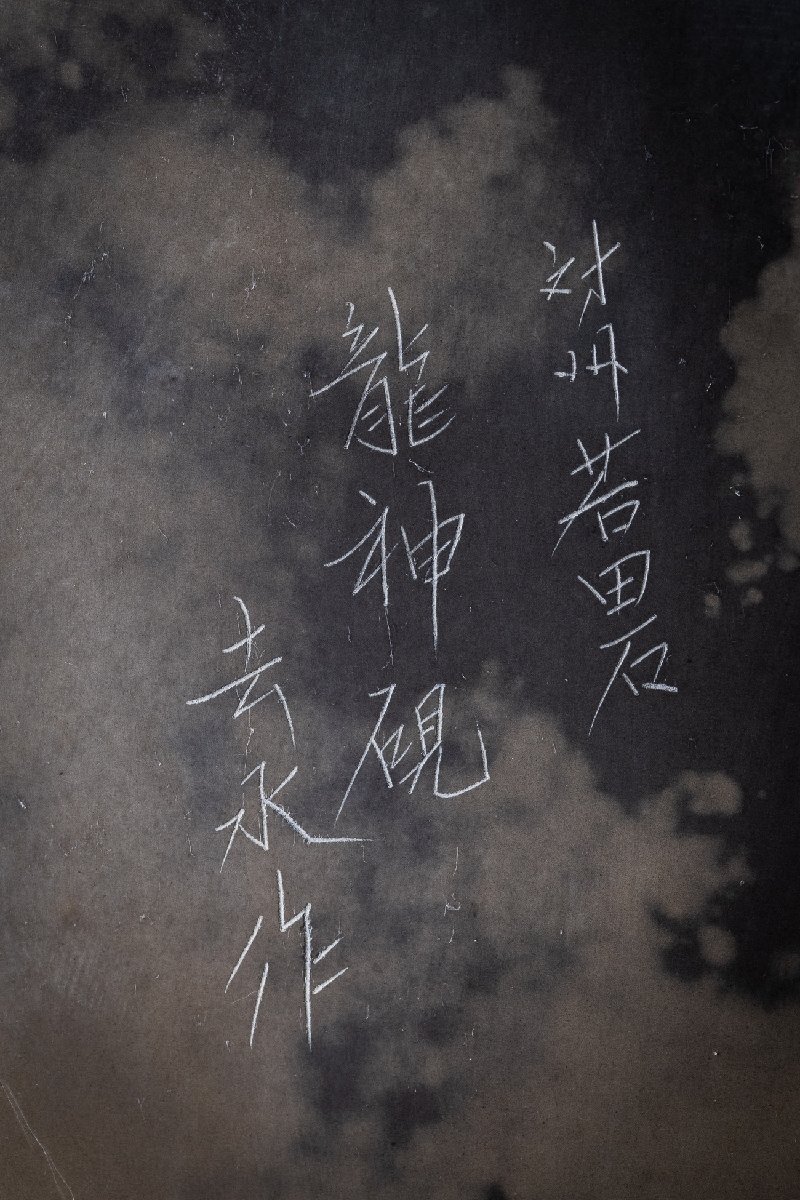 対州若田石
龍神硯
去永作